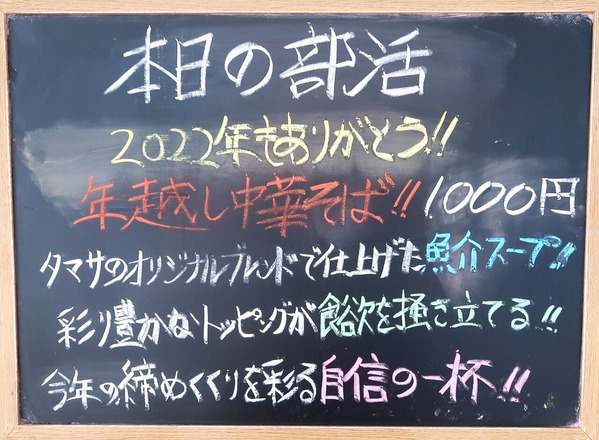 本日の部活
2022年もありがとう!!
年越し中華そば!! 1000円
タマサのオリジナルブレンドで仕上げた魚介スープ!!
彩り豊かなトッピングが食欲を掻き立てる!!
今年の締めくくりを彩る自信の一杯!!